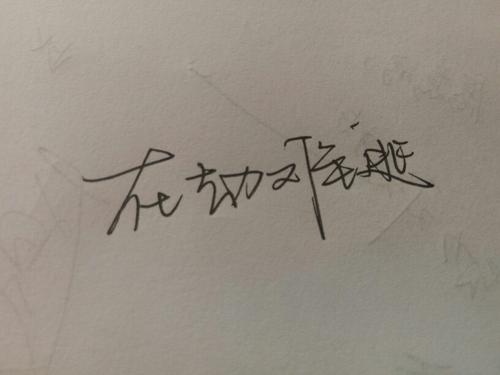 在劫难逃